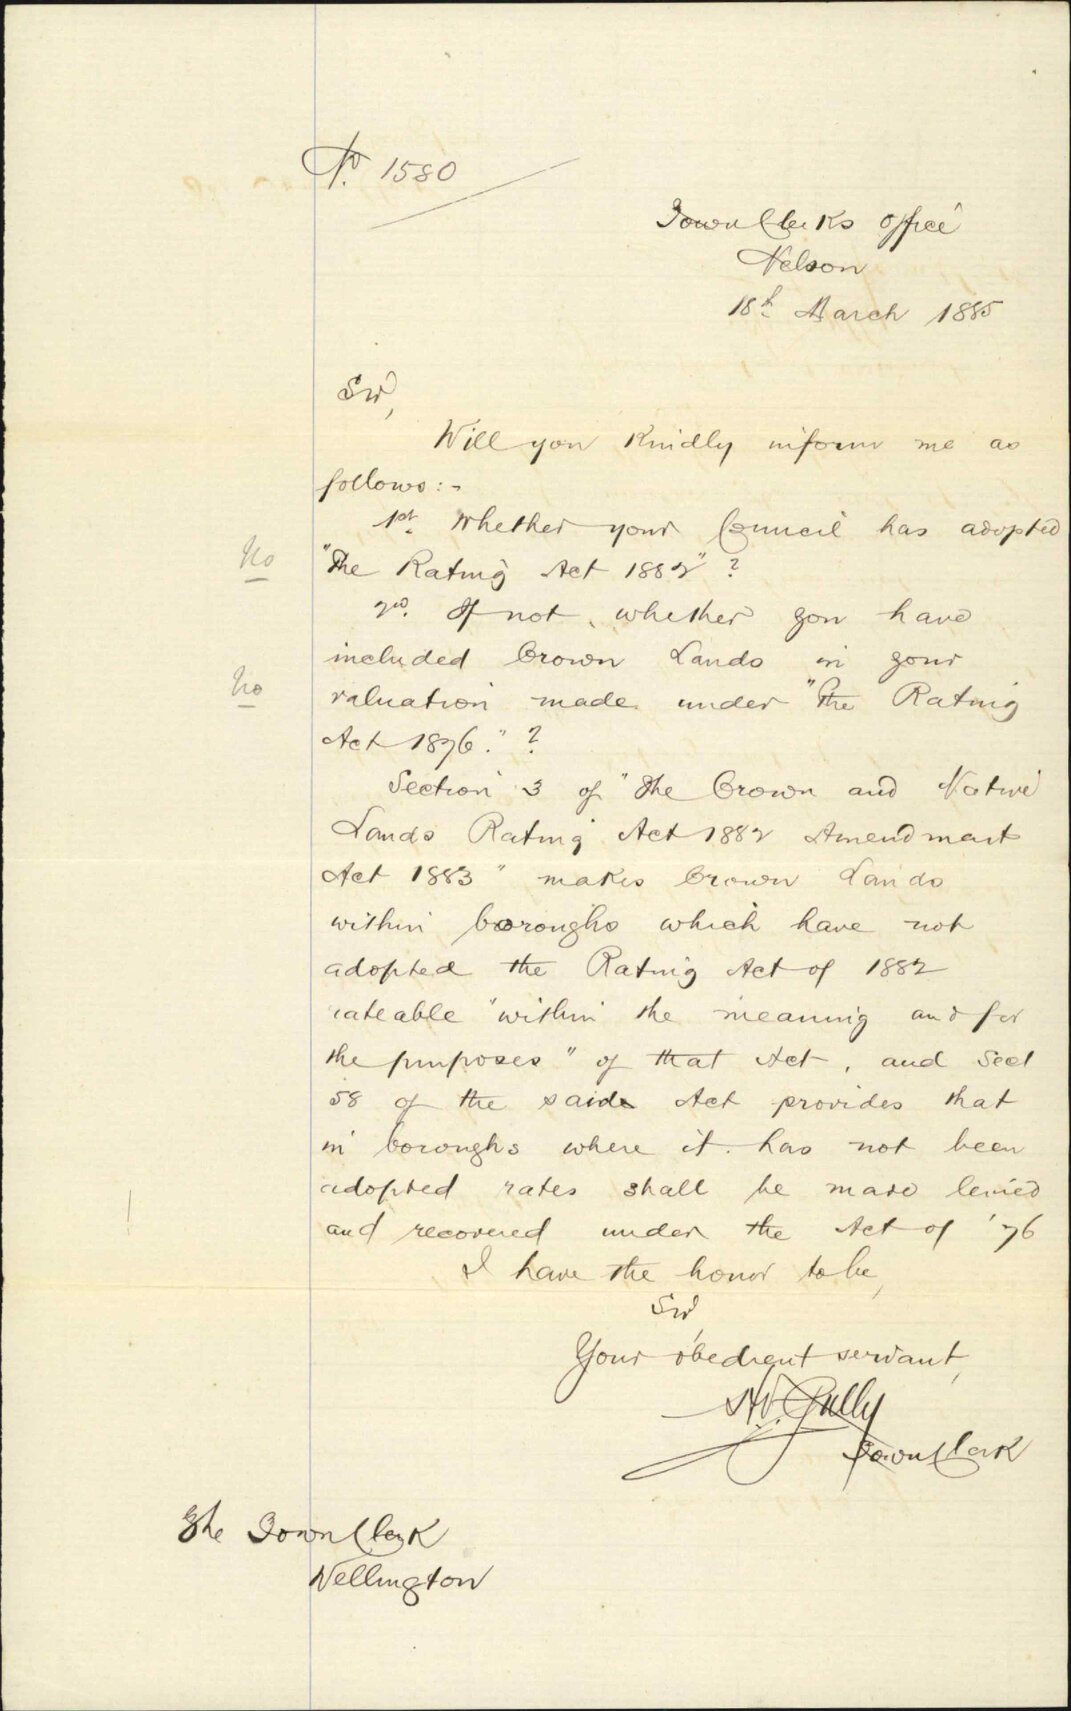 No. 1580
Town Clerks Office
Nelson
18th March 1885
Sir,
Will you Kindly inform me as
follows:-
1st. Whether your Council has adopted
No
"The Rating Act 1882"?
2nd. If not, whether you have
included Crown Lands in your
No
valuation made under "The Rating
Act 1876."?
Section 3 of "The Crown and Native
Lands Rating Act 1882 Amendment
Act 1883" makes Crown Lands
within boroughs which have not
adopted the Rating Act of 1882
rateable "within the meaning and for
the purposes" of that Act, and Sect
58 of the said Act provides that
in boroughs where it has not been
adopted rates shall be made levied
and recovered under the Act of '76
I have the honor to be,
Sir,
Your obedient servant,
Gully
Town Clerk
The Town Clerk
Wellington